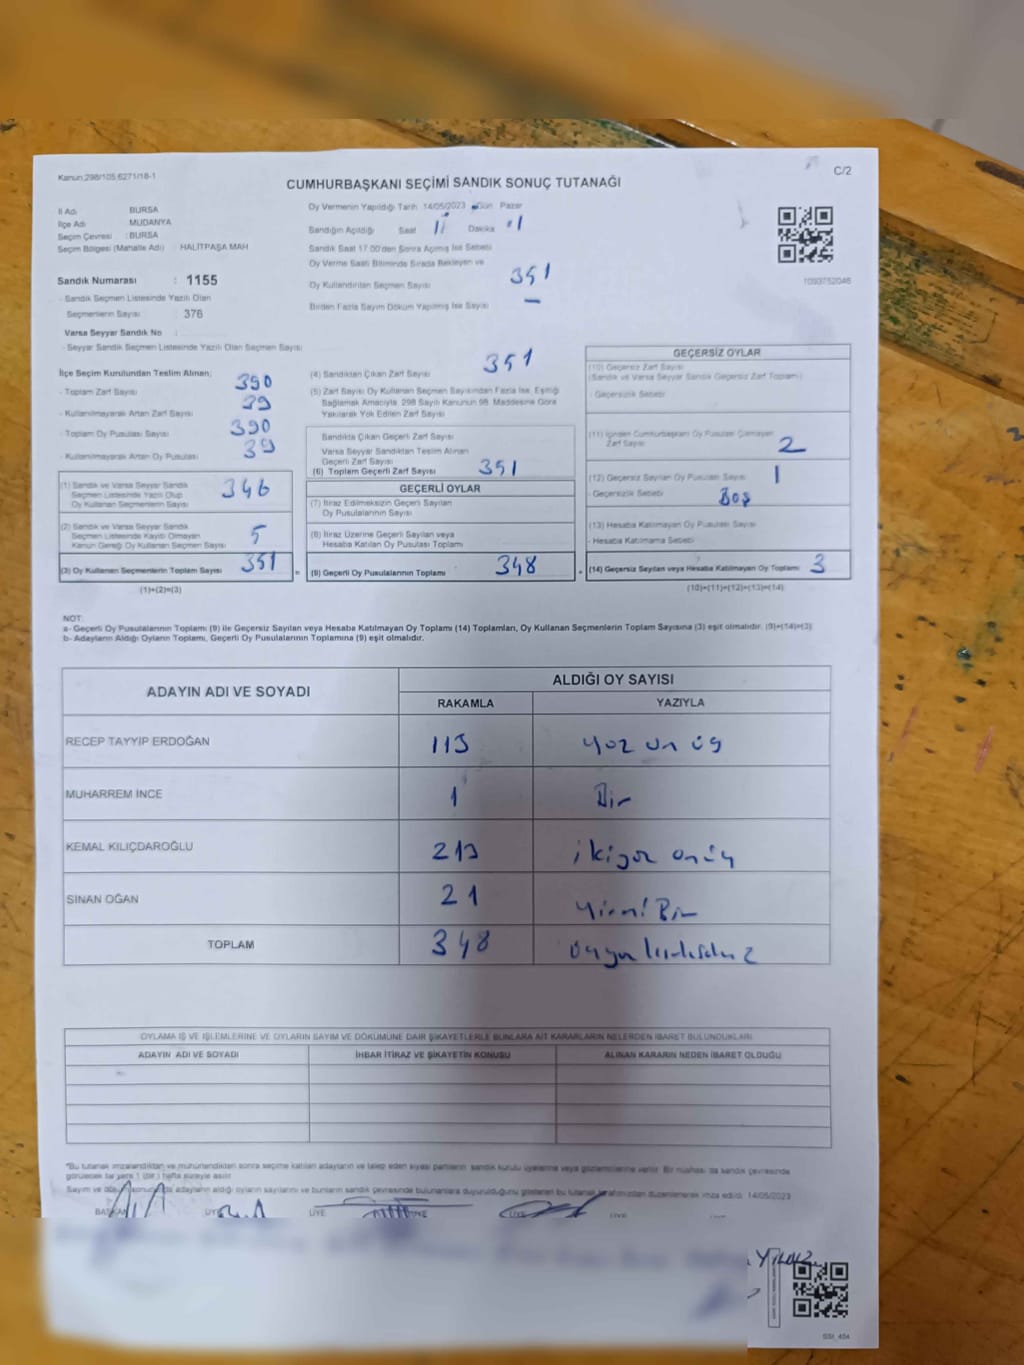 Kanun;298/105,6271/18-1
C/2
CUMHURBAŞKANI SEÇİMİ SANDIK SONUÇ TUTANAĞI
İl Adı BURSA
İlçe Adı MUDANYA
Seçim Çevresi : BURSA
Seçim Bölgesi (Mahalle Adı) : HALİTPAŞA MAH
Sandık Numarası : 1155
- Sandık Seçmen Listesinde Yazılı Olan
Seçmenlerin Sayısı : 376
Varsa Seyyar Sandık No :
- Seyyar Sandık Seçmen Listesinde Yazılı Olan Seçmen Sayısı
Oy Vermenin Yapıldığı Tarih 14/05/2023 Gün Pazar
Sandığın Açıldığı Saat Dakika
Sandık Saat 17.00'den Sonra Açılmış İse Sebebi
Oy Verme Saati Bitiminde Sırada Bekleyen ve
Oy Kullandırılan Seçmen Sayısı 351
Birden Fazla Sayım Döküm Yapılmış İse Sayısı –
1093752046
İlçe Seçim Kurulundan Teslim Alınan;
- Toplam Zarf Sayısı 390
- Kullanılmayarak Artan Zarf Sayısı 39
- Toplam Oy Pusulası Sayısı 390
- Kullanılmayarak Artan Oy Pusulası 39
(1) Sandık ve Varsa Seyyar Sandık
Seçmen Listesinde Yazılı Olup
Oy Kullanan Seçmen Sayısı 346
(2) Sandık ve Varsa Seyyar Sandık
Seçmen Listesinde Kayıtlı Olmayan
Kanun Gereği Oy Kullanan Seçmen Sayısı 5
(3) Oy Kullanan Seçmenlerin Toplam Sayısı 351
(1)+(2)=(3)
(4) Sandıktan Çıkan Zarf Sayısı 351
(5) Zarf Sayısı Oy Kullanan Seçmen Sayısından Fazla İse, Eşitliği
Sağlamak Amacıyla, 298 Sayılı Kanunun 98. Maddesine Göre
Yakılarak Yok Edilen Zarf Sayısı
Sandıkta Çıkan Geçerli Zarf Sayısı
Varsa Seyyar Sandıktan Teslim Alınan
Geçerli Zarf Sayısı
(6) Toplam Geçerli Zarf Sayısı 351
GEÇERLİ OYLAR
(7) İtiraz Edilmeksizin Geçerli Sayılan
Oy Pusulalarının Sayısı
(8) İtiraz Üzerine Geçerli Sayılan veya
Hesaba Katılan Oy Pusulası Toplamı
(9) Geçerli Oy Pusulalarının Toplamı 348
GEÇERSİZ OYLAR
(10) Geçersiz Zarf Sayısı
(Sandık ve Varsa Seyyar Sandık Geçersiz Zarf Toplamı)
- Geçersizlik Sebebi
(11) İçinden Cumhurbaşkanı Oy Pusulası Çıkmayan
Zarf Sayısı 2
(12) Geçersiz Sayılan Oy Pusulası Sayısı 1
- Geçersizlik Sebebi Boş
(13) Hesaba Katılmayan Oy Pusulası Sayısı
- Hesaba Katılmama Sebebi
(14) Geçersiz Sayılan veya Hesaba Katılmayan Oy Toplamı 3
(10)+(11)+(12)+(13)=(14)
NOT:
a- Geçerli Oy Pusulalarının Toplamı (9) ile Geçersiz Sayılan veya Hesaba Katılmayan Oy Toplamı (14) Toplamları, Oy Kullanan Seçmenlerin Toplam Sayısına (3) eşit olmalıdır. (9)+(14)=(3)
b- Adayların Aldığı Oyların Toplamı, Geçerli Oy Pusulalarının Toplamına (9) eşit olmalıdır.
ADAYIN ADI VE SOYADI
ALDIĞI OY SAYISI
RAKAMLA YAZIYLA
RECEP TAYYİP ERDOĞAN 113 yüz on üç
MUHARREM İNCE 1 Bir
KEMAL KILIÇDAROĞLU 213 ikiyüz onüç
SİNAN OĞAN 21 yirmi Bir
TOPLAM 348
OYLAMA İŞ VE İŞLEMLERİNE VE OYLARIN SAYIM VE DÖKÜMÜNE DAİR ŞİKAYETLERLE BUNLARA AİT KARARLARIN NELERDEN İBARET BULUNDUKLARI
ADAYIN ADI VE SOYADI İHBAR İTİRAZ VE ŞİKAYETİN KONUSU ALINAN KARARIN NEDEN İBARET OLDUĞU
"Bu tutanak imzalandıktan ve mühürlendikten sonra seçime katılan adayların ve talep eden siyasi partilerin sandık kurulu üyelerine veya gözlemcilerine verilir. Bir nüshası da sandık çevresinde
görülecek bir yere 1 (bir) hafta süreyle asılır.
Sayım ve döküm sonucunda adayların aldığı oyların sayılarını ve bunların sandık çevresinde bulunanlara duyurulduğunu gösteren bu tutanak tarafımızdan düzenlenerek imza edildi. 14/05/2023
BAŞKAN ÜYE ÜYE ÜYE ÜYE ÜYE
YILDIZ